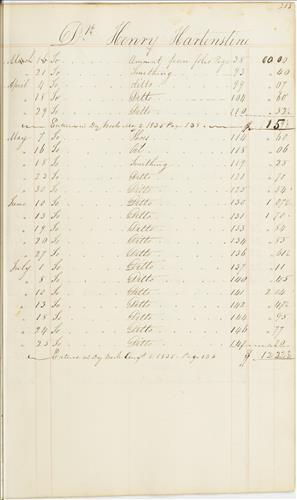 Dr. Henry Hartenstine
March 16 To Amount from folio Page 28 00 00
" 21 To Smithing 93 .40
April 4 To ditto 99 .07
" 18 To Ditto 104
" 29 To Ditto
Entered in Day Book 1835 Page 138 $ 15
May 7 To Shoes 114 .60
" 16 To 118 .06
" 18 To Smithing 119 .25
" 23 To Ditto 121 .70
" 30 To Ditto 125 .54
June 10 To Ditto 130
" 13 To Ditto 131 1 70
" 19 To Ditto 133 .84
" 20 To Ditto 134 .85
" 27 To Ditto 136
July 1 To Ditto 137 .11
" 8 To Ditto 140 .45
" 10 To Ditto 141
" 13 To Ditto 142
" 18 To Ditto 144 .95
" 24 To Ditto 146 .77
" 25 To Ditto
Entered in Day Book Augt 1835 Page $ 12